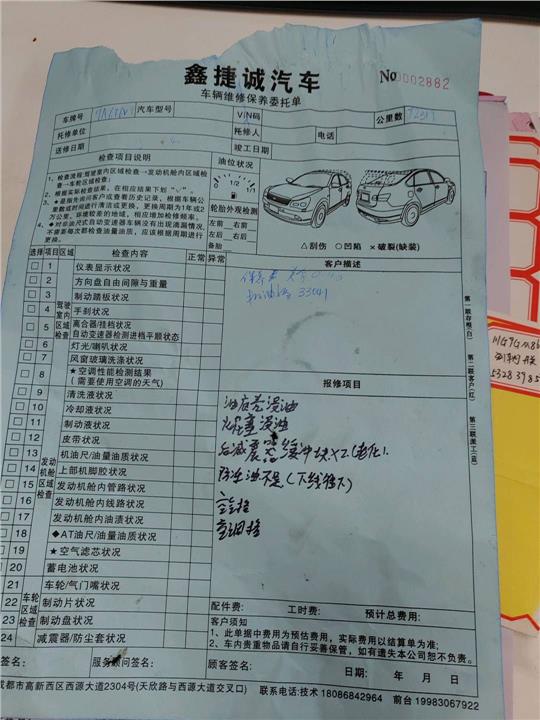 鑫捷诚汽车
车辆维修保养委托单
No0002882
车牌号 汽车型号 VIN码 公里数
托修单位 托修人 电话
送修日期 竣工日期
检查项目说明
1、检查流程:驾驶室内区域检查→发动机舱内区域检查→车轮区域检查。
2、根据实际检查结果,在相应结果下划“√”。
3、★是指先询问客户或查看历史记录,根据车辆公里数或时间进行清洁或更换,更换周期为1年或2万公里,环境较差的地域,相应增加检修频率。
4、◆对非油尺式自动变速器车辆没有出现滴漏情况,不需要每次都检查油量油质,应该根据周期进行更换。
油位状况
0 1/2 1/1
轮胎外观检测
左前 右前
左后 右后
备胎
△刮伤 ○凹陷 ×破裂(缺装)
选择 项目区域 检查内容 正常 异常
客户描述
保养
机油格 33041
驾驶室内区域检查
1 仪表显示状况
2 方向盘自由间隙与重量
3 制动踏板状况
4 手刹状况
5 离合器/挂档状况
自动变速器检测进档平顺状态
6 灯光/喇叭状况
7 风窗玻璃洗涤状况
8 ★空调性能检测结果
(需要使用空调的天气)
发动机舱区域检查
9 清洗液状况
10 冷却液状况
11 制动液状况
12 皮带状况
13 机油尺/油量油质状况
14 上部机脚胶状况
15 发动机舱内管路状况
16 发动机舱内线路状况
17 发动机舱内油渍状况
18 ◆AT油尺/油量油质状况
19 ★空气滤芯状况
20 蓄电池状况
车轮区域检查
21 车轮/气门嘴状况
22 制动片状况
23 制动盘状况
24 减震器/防尘套状况
报修项目
油底壳漫油
后减震 缓冲块x2(老化)
防冻油不足(下线往下)
空气格
空调格
配件费: 工时费: 预计总费用:
客户须知
1、此单据中费用为预估费用,实际费用以结算单为准;
2、车内贵重物品请自行妥善保管,如有遗失本公司恕不负责。
签名: 服务顾问签名: 顾客签名: 日期: 年 月 日
成都市高新西区西源大道2304号(天欣路与西源大道交叉口) 联系电话:技术 18086842964 前台 19983067922
第一联存根(白)
第二联客户(红)
第三联派工(蓝)